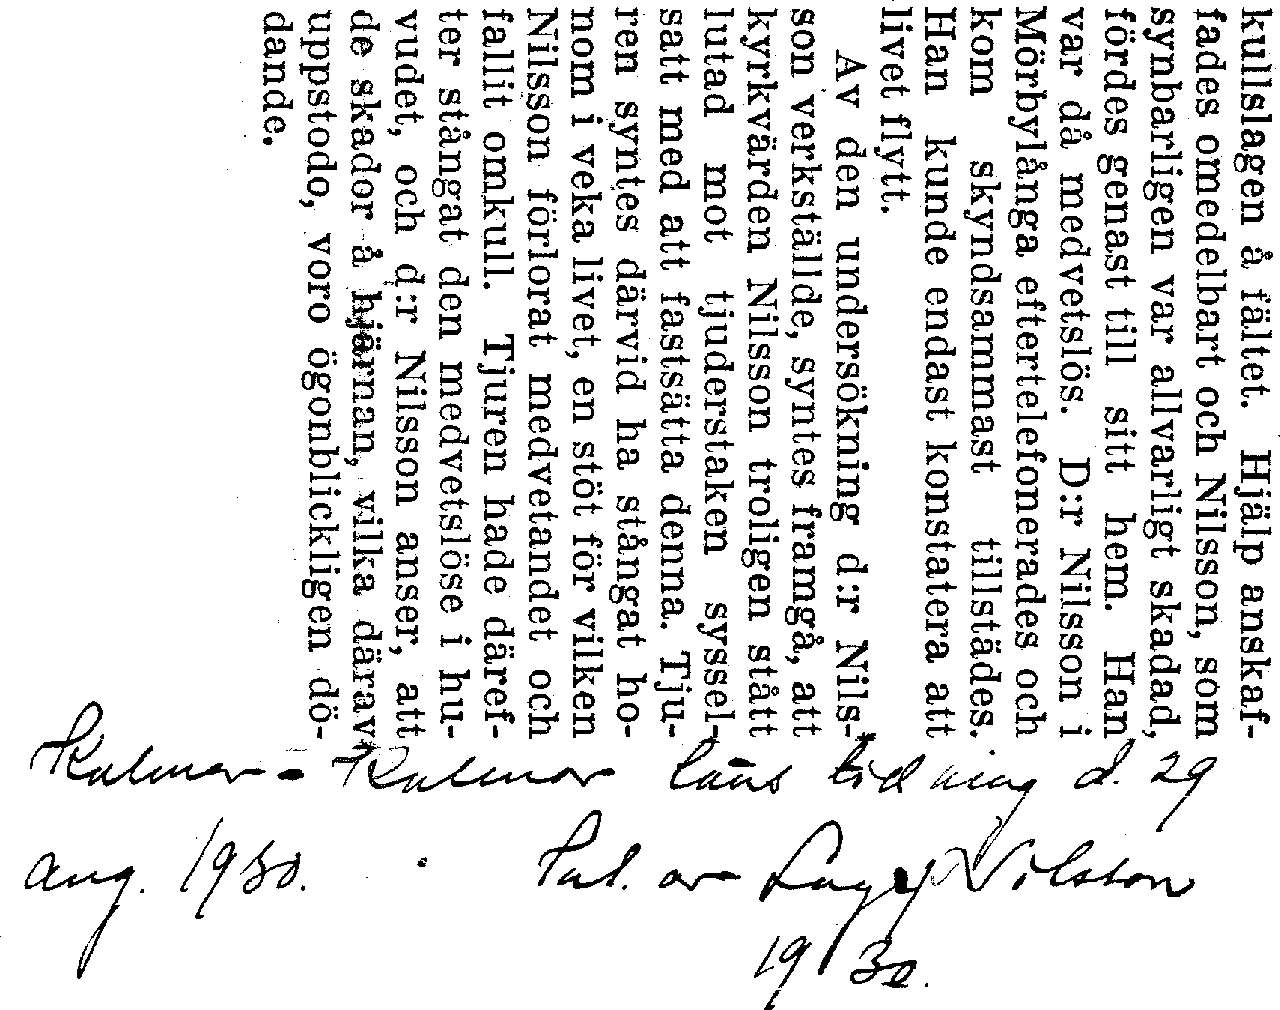 kullslagen å fältet. Hjälp anskaf-
fades omedelbart och Nilsson, som
synbarligen var allvarligt skadad,
fördes genast till sitt hem. Han
var då medvetslös. D:r Nilsson i
Mörbylånga eftertelefonerades och
kom skyndsammast tillstädes.
Han kunde endast konstatera att
livet flytt.
Av den undersökning d:r Nils-
son verkställde, syntes framgå, att
kyrkvärden Nilsson troligen stått
lutad mot tjuderstaken syssel-
satt med att fastsätta denna. Tju-
ren syntes därvid ha stångat ho-
nom i veka livet, en stöt för vilken
Nilsson förlorat medvetandet och
fallit omkull. Tjuren hade däref-
ter stångat den medvetslöse i hu-
vudet, och d:r Nilsson anser, att
de skador å hjärnan, vilka därav
uppstodo, voro ögonblickligen dö-
dande.
Kalmar - Kalmar läns tidning d. 29
aug. 1930. Sal. av Nilsson
1930.